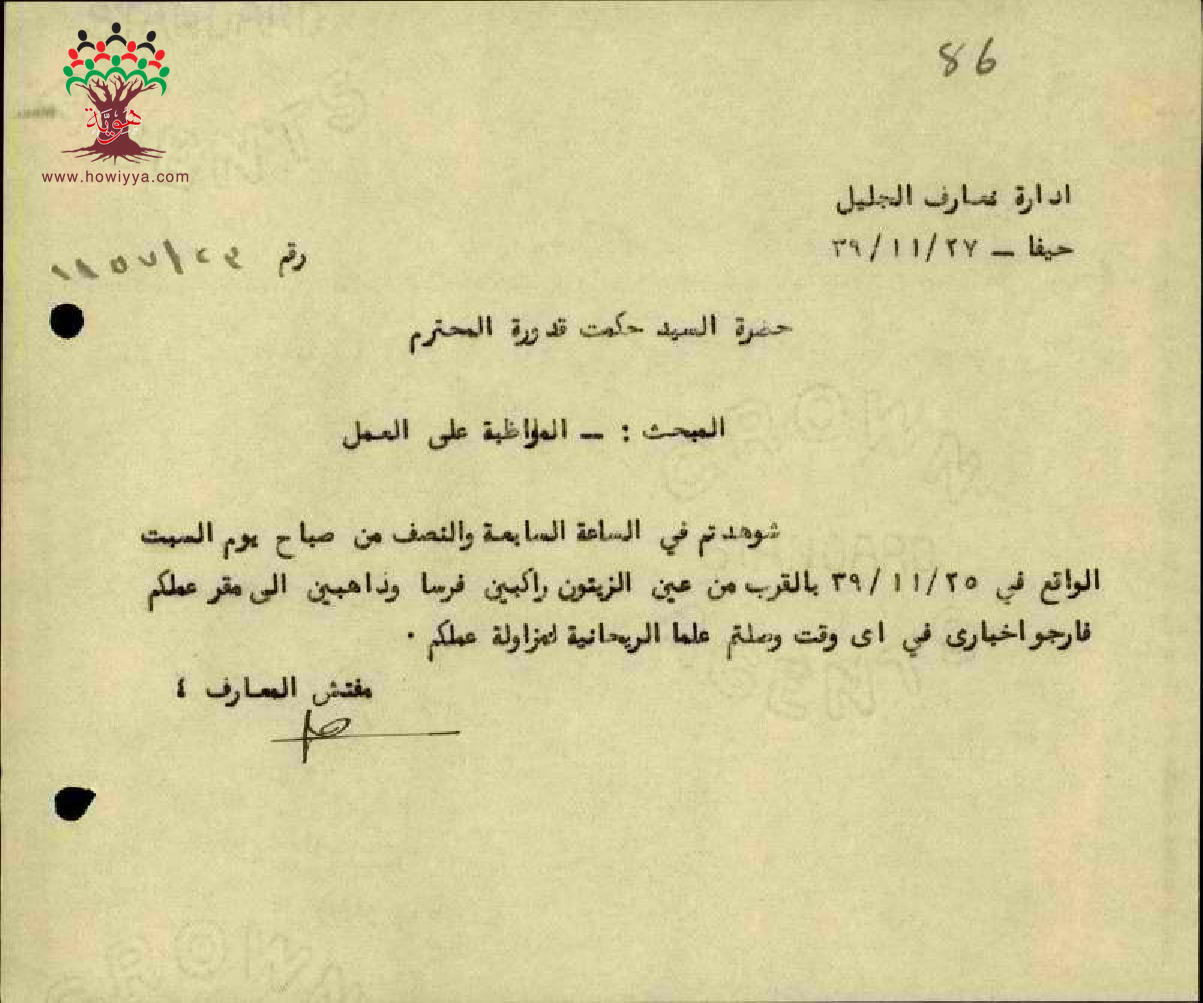 86
هوية
www.howiyya.com
ادارة معارف الجليل
حيفا – ٣٩/١١/٢٧
رقم
حضرة السيد حكمت قدورة المحترم
المبحث : – المواظبة على العمل
شوهدتم في الساعة السابعة والنصف من صباح يوم السبت
الواقع في ٣٩/١١/٢٥ بالقرب من عين الزيتون راكبين فرسا وذاهبين الى مقر عملكم
فارجو اخبارى في اى وقت وصلتم علما الريحانية لمزاولة عملكم .
مفتش المعارف ٤